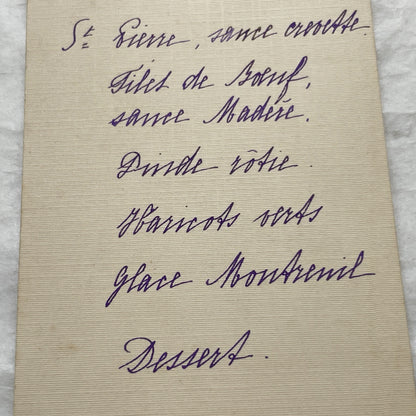 St Pierre, sauce crevette.
Filet de Bœuf,
sauce Madère.
Dinde rôtie.
Haricots verts
Glace Montreuil
Dessert.